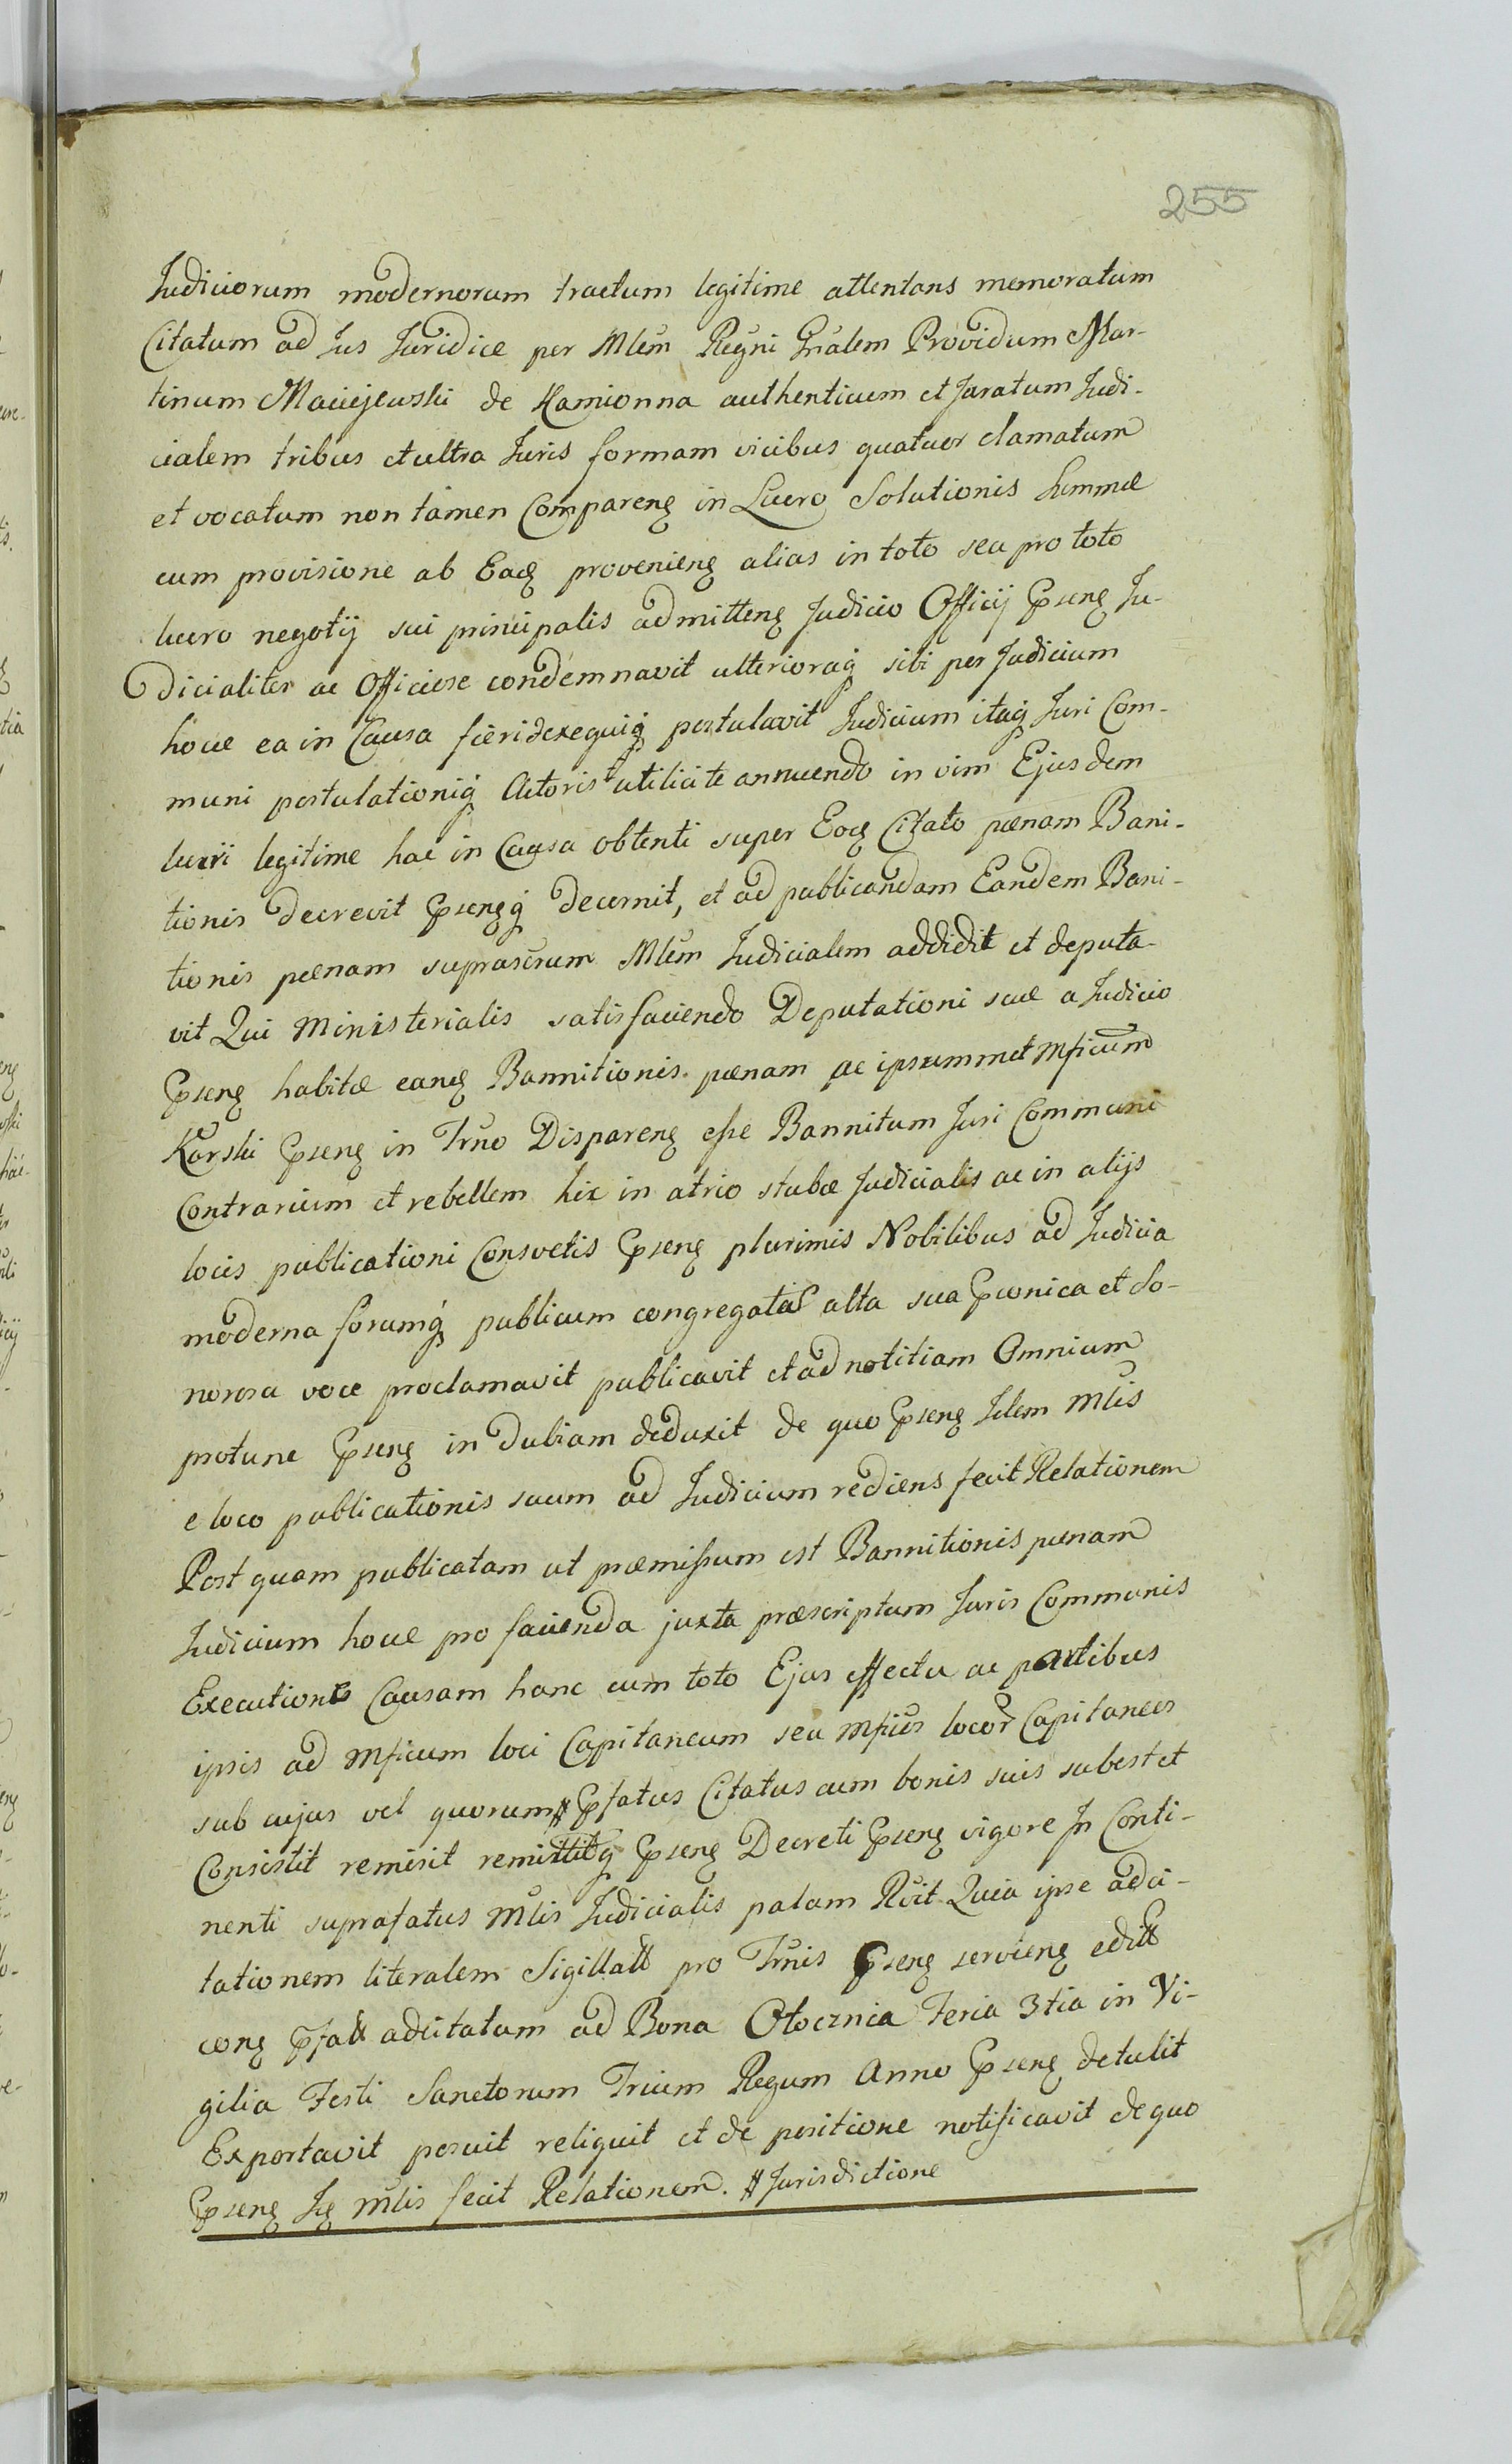 255
Judiciorum modernorum tractum legitime attentans memoratum
Citatum ad Jus Juridice per Mlem Regni Gnalem Providum Mar-
tinum Maciejewski de Kamionna authenticum et Juratum Judi-
cialem tribus et ultra Juris formam vicibus quatuor clamatum
et vocatum non tamen Comparenę in Lucro Solutionis Summæ
cum provisione ab Eadę provenienę alias in toto seu pro toto
lucro negotij sui principalis admittenę Judicio Officij Pȓsenę Ju-
dicialiter ac Officiose condemnavit ulterioraq sibi per Judicium
hocce ea in Causa fieri et exequiq postulavit Judicium itaq Juri Com-
muni postulationiq Actoris utilicite annuendo in vim Ejusdem
lucri legitime hac in Causa obtenti super Eodę Citato pœnam Bani-
tionis decrevit Pȓsenęq decernit, et ad publicandam Eandem Bani-
tionis pœnam suprascrum Mlem Judicialem addidit et deputa-
vit Qui Ministerialis satisfaciendo Deputationi suæ a Judicio
Pȓsenę habitæ eandę Bannitionis pœnam ac ipsummet Mficum
Karski Pȓsenę in Trno Disparenę esse Bannitum Juri Communi
Contrarium et rebellem hic in atrio stubæ Judicialis ac in alijs
locis publicationi Consvetis Pȓsenę plurimis Nobilibus ad Judicia
moderna forumq publicum congregatis alta sua Pȓconica et So-
norosa voce proclamavit publicavit et ad notitiam Omnium
protunc Pȓsenę in dubiam deduxit de quo Pȓsenę Idem Mlis
e loco publicationis suum ad Judicium rediens fecit Relationem
Post quam publicatam ut præmissum est Bannitionis pœnam
Judicium hocce pro facienda juxta præscriptum Juris Communis
Executione Causam hanc cum toto Ejus effectu ac partibus
ipsis ad Mficum loci Capitaneum seu Mficos locor Capitaneos
sub cujus vel quorum # Pȓfatus Citatus cum bonis suis subest et
Consistit remisit remittitq Pȓsenę Decreti Pȓsenę vigore In Conti-
nenti suprafatus Mlis Judicialis palam Rvit Quia ipse adci-
tationem literalem Sigillatt pro Trnis Pȓsenę servienę editt
conę Pȓfatt adcitatum ad Bona Otocznia Feria 3tia in Vi-
gilia Festi Sanctorum Trium Regum Anno Pȓsenę detulit
Exportavit posuit reliquit et de positione notificavit de quo
Pȓsenę Idę Mlis fecit Relationem. # Jurisdictione